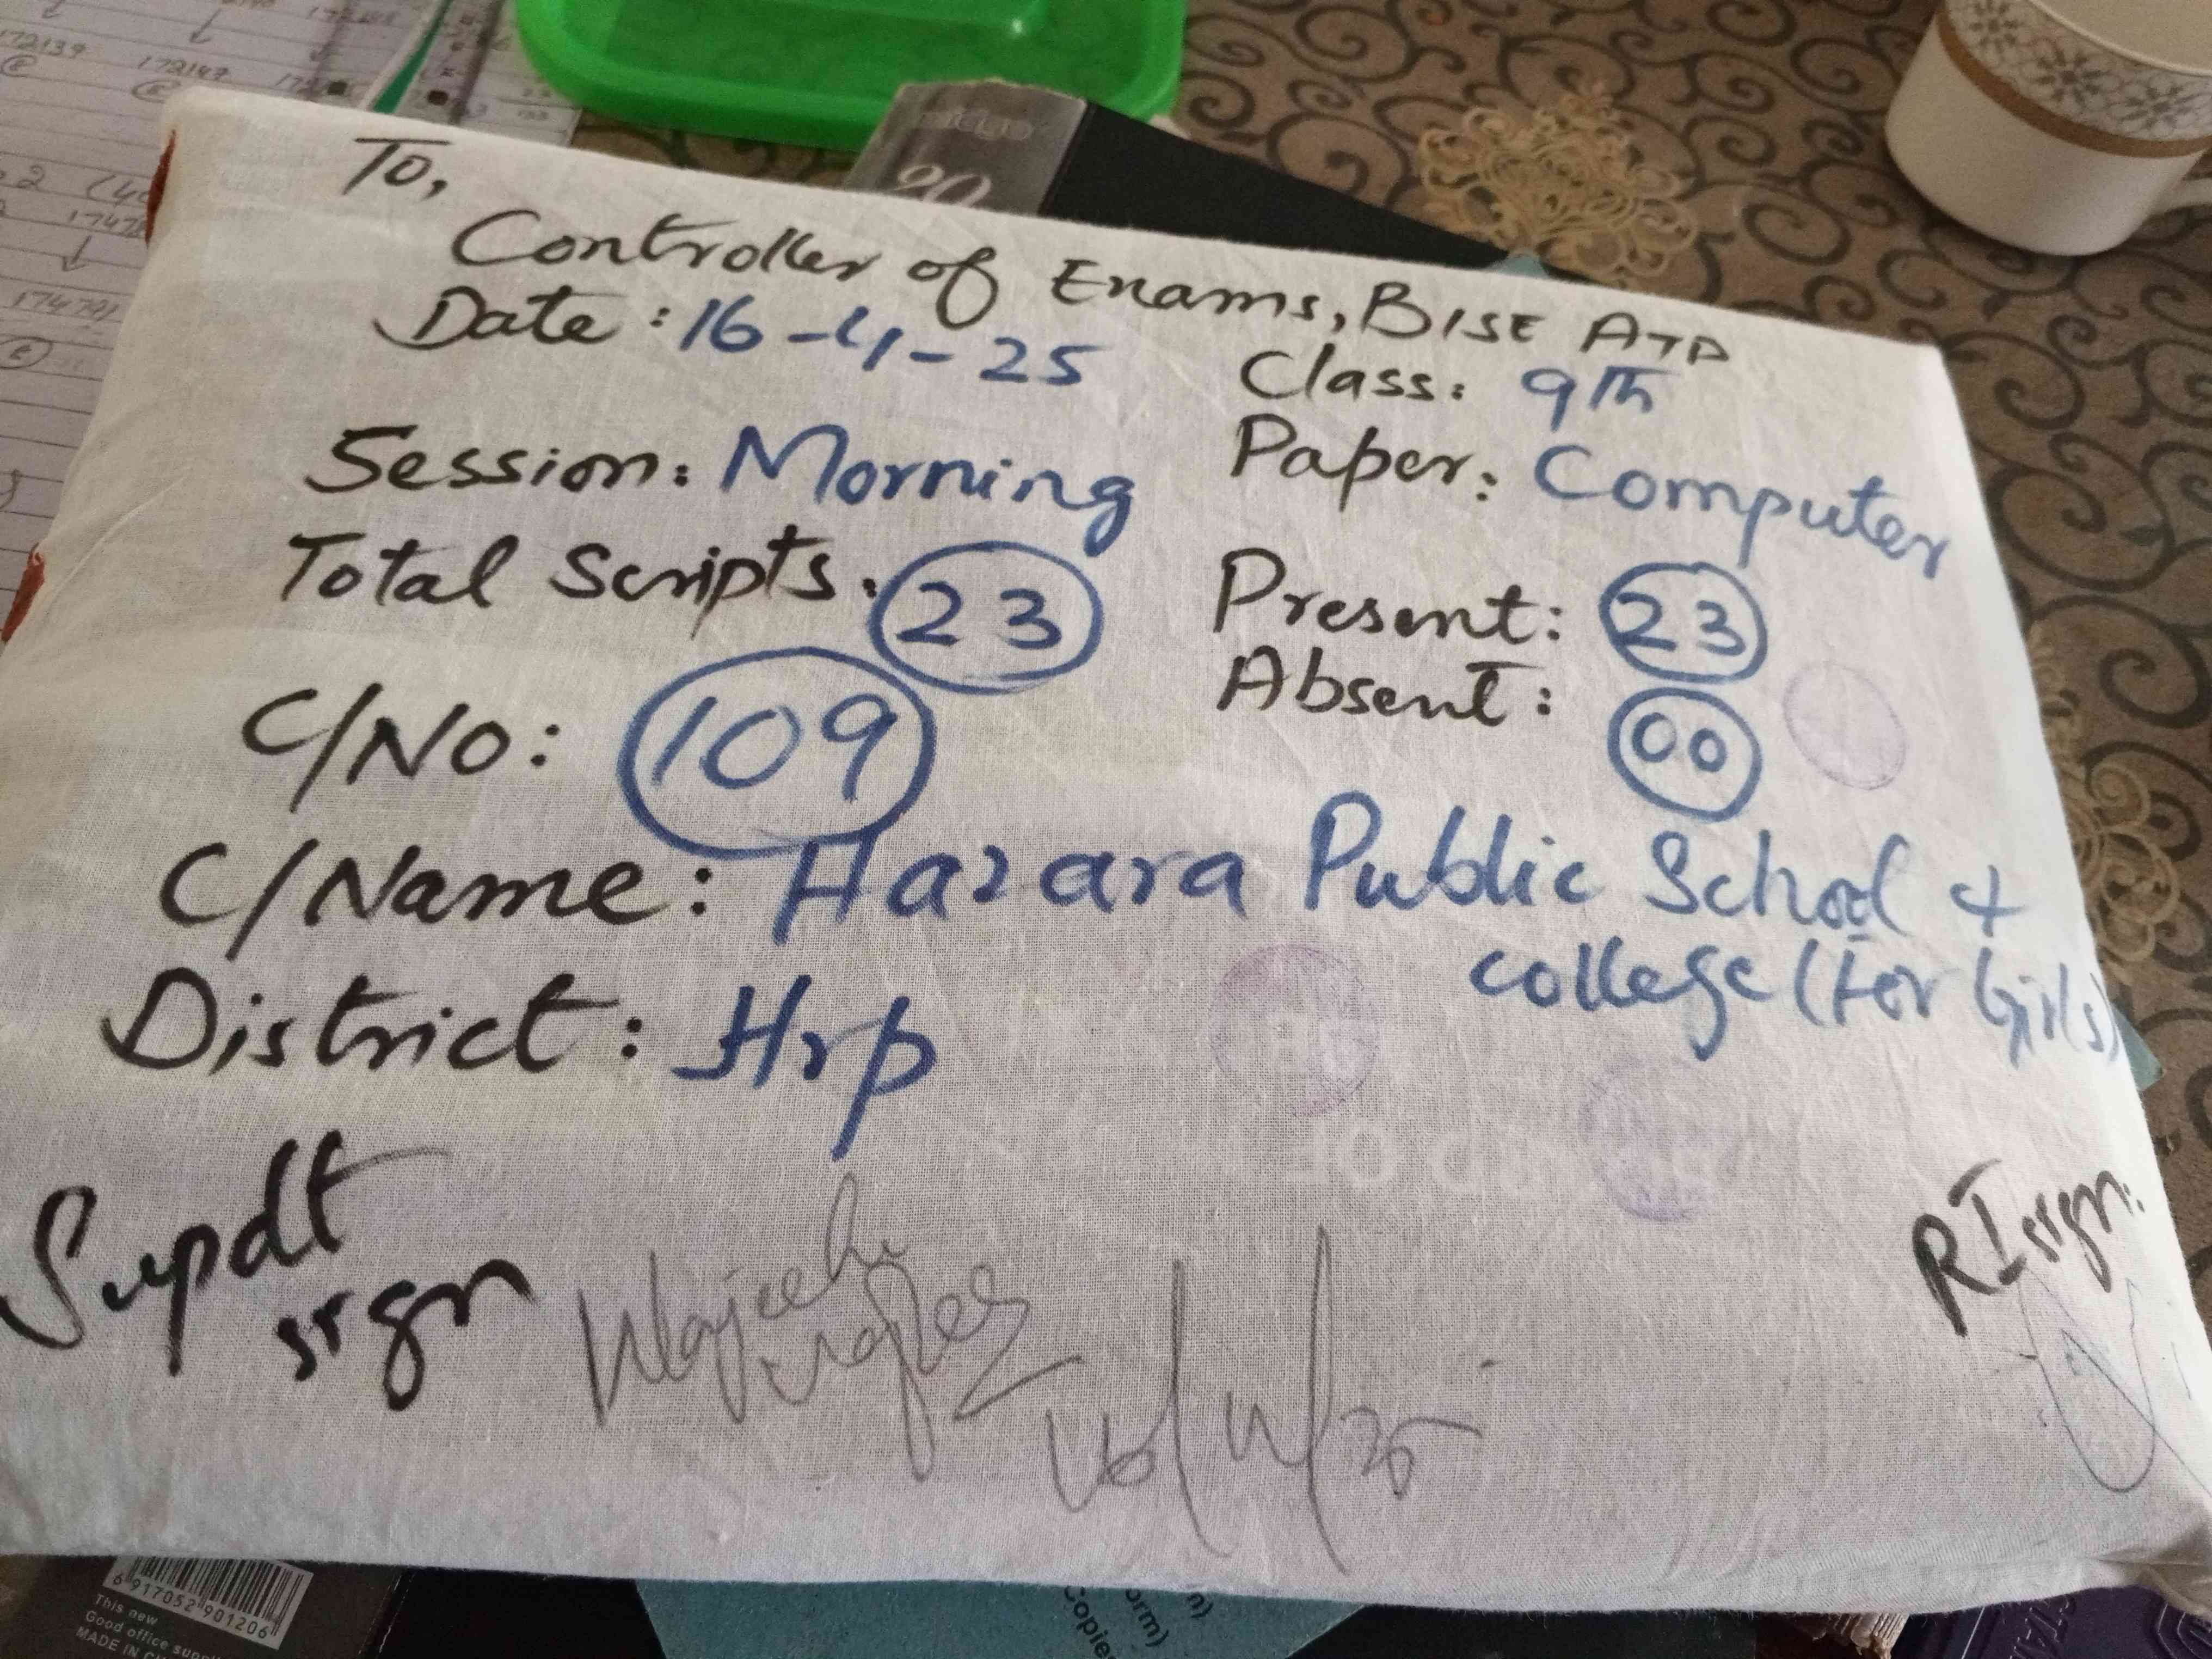 172139
172147
174791
20
To,
Controller of Exams, BISE ATD
Date: 16-4-25
Class: 9th
Session: Morning
Paper: Computer
Total Scripts: 23
Present: 23
Absent: 00
C/No: 109
C/Name: Hazara Public School &
college (For Girls)
District: Hrp
Supdt
sign
RI sign:
16/4/25
6 917052 901206
This new
Good office
MADE IN